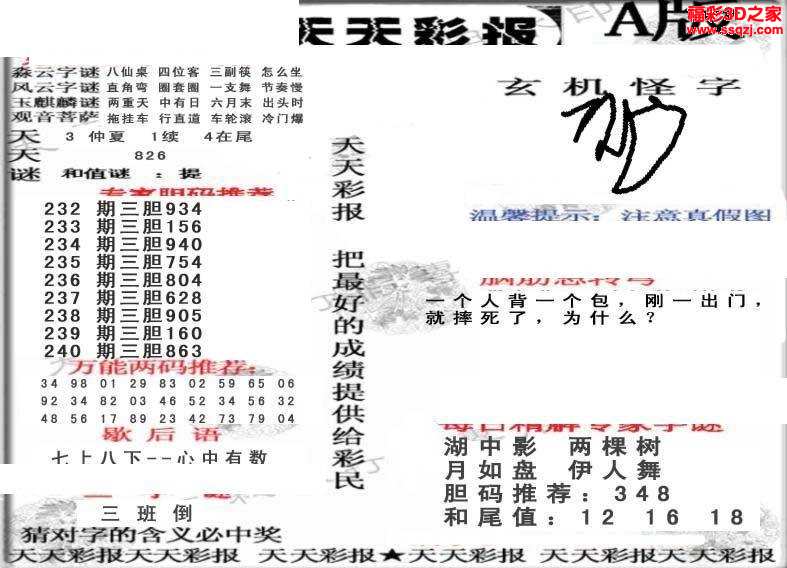 天天彩报
A版
福彩3D之家
www.ssqzj.com
森云字谜 八仙桌 四位客 三副筷 怎么坐
风云字谜 直角弯 圈套圈 一支舞 节奏慢
玉麒麟谜 两重天 中有日 六月末 出头时
观音菩萨 拖挂车 行直道 车轮滚 冷门爆
天 3 仲夏 1续 4在尾
天 826
谜 和值谜 : 提
专家胆码推荐
232 期三胆934
233 期三胆156
234 期三胆940
235 期三胆754
236 期三胆804
237 期三胆628
238 期三胆905
239 期三胆160
240 期三胆863
万能两码推荐:
34 98 01 29 83 02 59 65 06
92 34 82 03 46 52 34 56 32
48 56 17 89 23 42 73 79 04
歇后语
七上八下--心中有数
三班倒
猜对字的含义必中奖
天天彩报 把最好的成绩提供给彩民
玄机怪字
温馨提示: 注意真假图
脑筋急转弯
一个人背一个包，刚一出门，
就摔死了，为什么？
每日精解专家字谜
湖中影 两棵树
月如盘 伊人舞
胆码推荐: 348
和尾值: 12 16 18
天天彩报 天天彩报 天天彩报★天天彩报 天天彩报 天天彩报